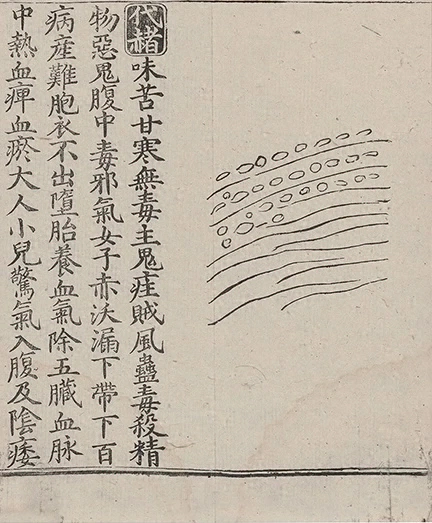 代赭
味苦甘寒無毒主鬼疰賊風蠱毒殺精
物惡鬼腹中毒邪氣女子赤沃漏下帶下百
病產難胞衣不出墮胎養血氣除五臟血脉
中熱血痺血瘀大人小兒驚氣入腹及陰痿